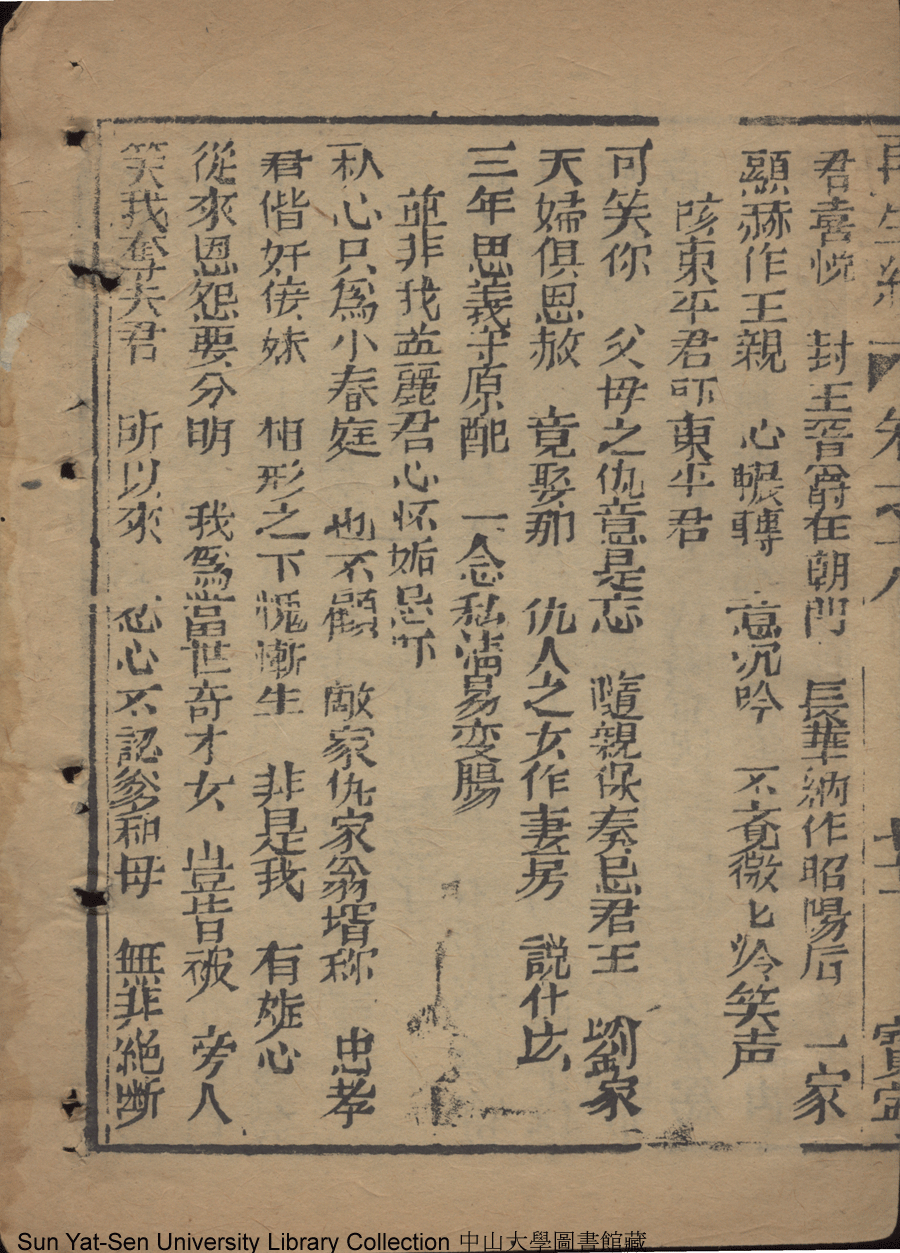 再生緣 卷之十八
君喜悅 封王晋爵在朝門 長華納作昭陽后 一家
顯赫作王親 心輾轉 意沉吟 不竟微匕冷笑声
咳東平君吓東平君
可笑你 父母之仇意是忘 隨親保奏忌君王 劉家
天婦俱恩赦 竟娶那 仇人之女作妻房 說什広
三年思義守原配 一念私情易变腸
並非我孟麗君心怀妬忌吓
私心只爲小春庭 也不顧 敵家仇家翁壻称 忠孝
君偕奸侫妹 相形之下愧慚生 非是我 有妬心
從來恩怨要分明 我爲當世奇才女 豈皆被 旁人
笑我奪夫君 所以來 忍心不認爹和母 無非絕斷
Sun Yat-Sen University Library Collection 中山大學圖書館藏